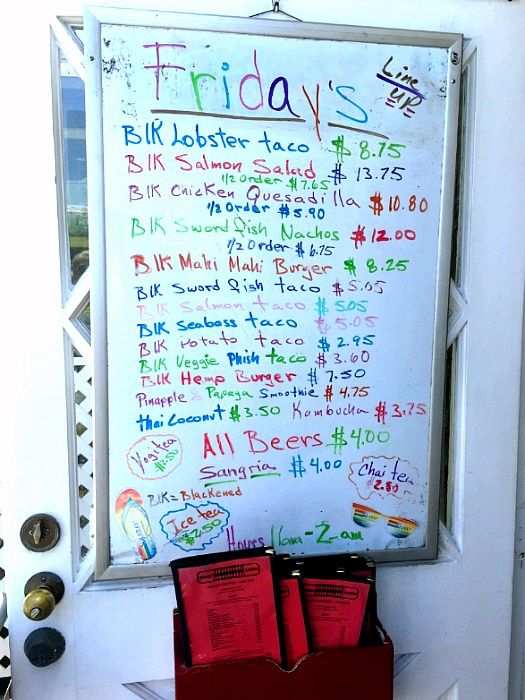 Friday's
Line
UP
Blk Lobster taco $ 8.75
Blk Salmon Salad $ 13.75
1/2 Order $ 7.65
Blk Chicken Quesadilla $ 10.80
1/2 Order $ 5.90
Blk Swordfish Nachos $ 12.00
1/2 Order $ 6.75
Blk Mahi Mahi Burger $ 8.25
Blk Swordfish taco $ 5.05
Blk Salmon taco $ 5.05
Blk Seabass taco $ 5.05
Blk Potato taco $ 2.95
Blk Veggie Phish taco $ 3.60
Blk Hemp Burger $ 7.50
Pineapple & Papaya Smoothie $ 4.75
Thai Coconut $ 3.50 Kambucha $ 3.75
All Beers $ 4.00
Yogi tea
$2.50
Sangria $ 4.00
Chai tea
$2.50
Blk = Blackened
Ice tea
$2.50
Hours 11am - 2am